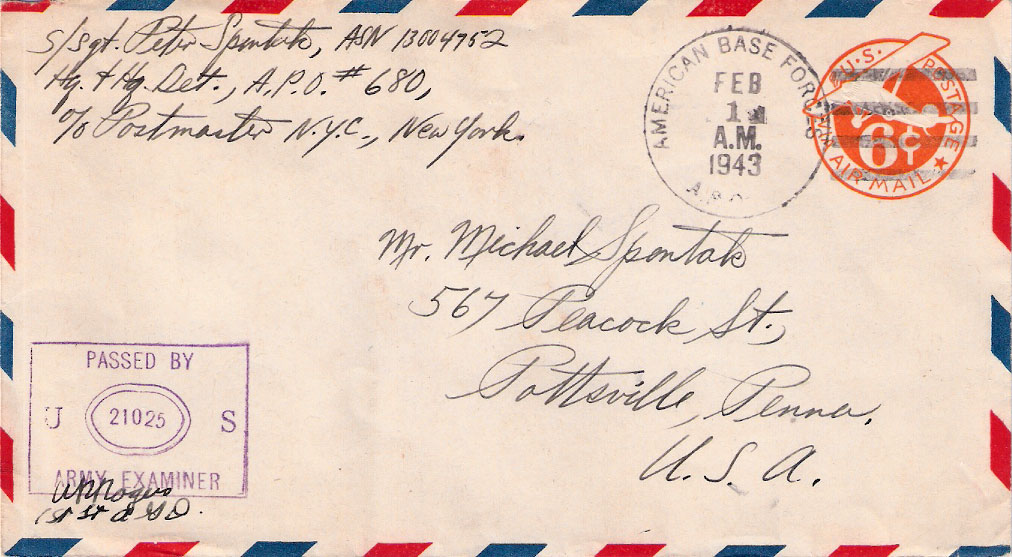 S/Sgt. Peter Spontak, ASN 13004752
Hq. & Hq. Det., A.P.O. # 680,
c/o Postmaster N.Y.C., New York.
AMERICAN BASE FORCES
FEB
1
A.M.
1943
A.P.O.
U.S. POSTAGE
6¢
AIR MAIL
Mr. Michael Spontak
567 Peacock St.,
Pottsville, Penna.
U. S. A.
PASSED BY
U 21025 S
ARMY EXAMINER
1st Lt